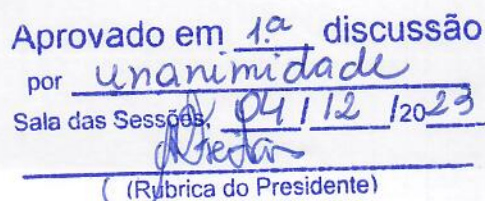 Aprovado em 1.ª discussão
por unanimidade
Sala das Sessões, 04 / 12 / 2023
( (Rubrica do Presidente)